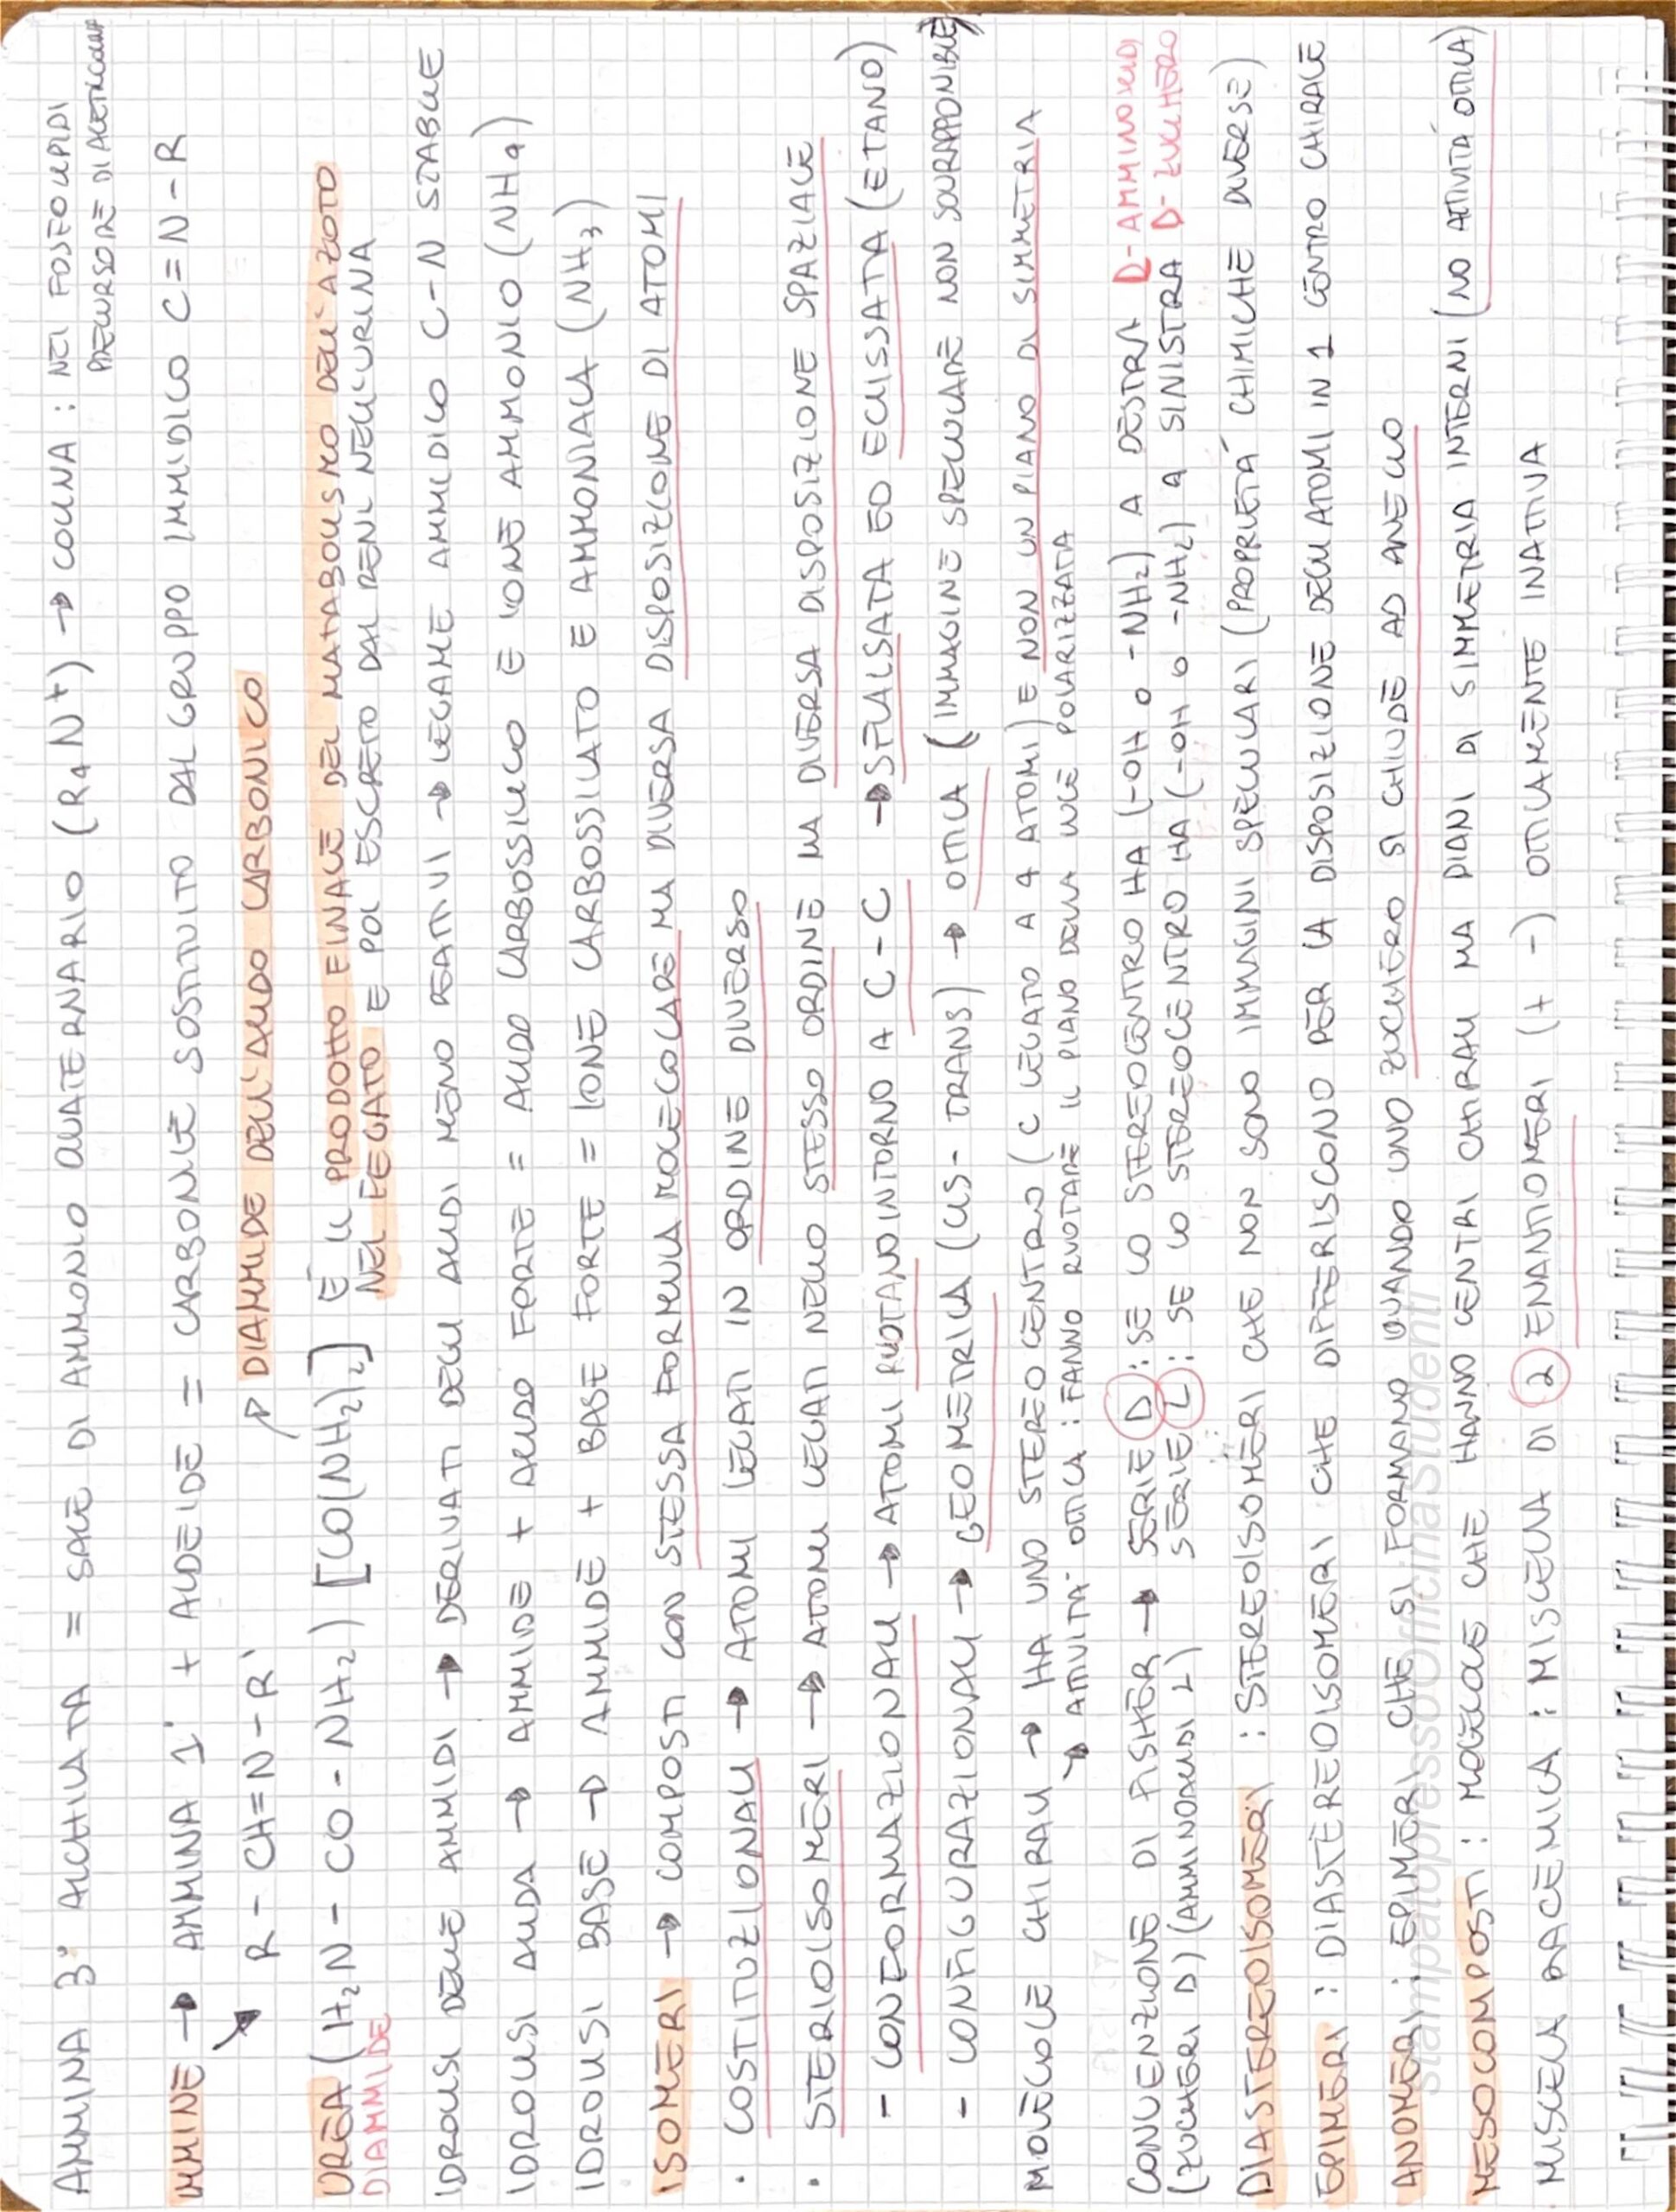 AMMINA 3° ALCHILATA = SALE DI AMMONIO QUATERNARIO (R4N+) → COLINA : NEI FOSFOLIPIDI
PRECURSORE DI ACETILCOLINA
IMMINE → AMMINA 1° + ALDEIDE = CARBONILE SOSTITUITO DAL GRUPPO IMMIDICO C=N-R
R-CH=N-R'
DIAMMIDE DELL'ACIDO CARBONICO
UREA (H2N-CO-NH2) [CO(NH2)2] È IL PRODOTTO FINALE DEL MATABOLISMO DELL'AZOTO
DIAMMIDE NEL FEGATO E POI ESCRETO DAL RENI NELL'URINA
IDROLISI DELLE AMMIDI → DERIVATI DEGLI ACIDI MENO REATTIVI → LEGAME AMMIDICO C-N STABILE
IDROLISI ACIDA → AMMIDE + ACIDO FORTE = ACIDO CARBOSSILICO E IONE AMMONIO (NH4)
IDROLISI BASE → AMMIDE + BASE FORTE = IONE CARBOSSILATO E AMMONIACA (NH3)
ISOMERI → COMPOSTI CON STESSA FORMULA MOLECOLARE MA DIVERSA DISPOSIZIONE DI ATOMI
· COSTITUZIONALI → ATOMI LEGATI IN ORDINE DIVERSO
· STERIOISOMERI → ATOMI LEGATI NELLO STESSO ORDINE MA DIVERSA DISPOSIZIONE SPAZIALE
- CONFORMAZIONALI → ATOMI RUOTANO INTORNO A C-C → SFALSATA ED ECLISSATA (ETANO)
- CONFIGURAZIONALI → GEOMETRICA (CIS-TRANS) → OTTICA (IMMAGINE SPECULARE NON SOVRAPPONIBILE)
MOLECOLE CHIRALI → HA UNO STEREOCENTRO (C LEGATO A 4 ATOMI) E NON UN PIANO DI SIMMETRIA
→ ATTIVITA' OTTICA : FANNO RUOTARE IL PIANO DELLA LUCE POLARIZZATA
CONVENZIONE DI FISHER → SERIE D : SE LO STEREOGENTRO HA (-OH O -NH2) A DESTRA D-AMMINOACIDI
(ZUCCHERI D) (AMMINOACIDI L) SERIE L : SE LO STEREOCENTRO HA (-OH O -NH2) A SINISTRA D-ZUCCHERO
DIASTEREOISOMERI : STEREOISOMERI CHE NON SONO IMMAGINI SPECULARI (PROPRIETÀ CHIMICHE DIVERSE)
EPIMERI : DIASTEREOISOMERI CHE DIFFERISCONO PER LA DISPOSIZIONE DEGLI ATOMI IN 1 CENTRO CHIRALE
ANOMERI : EPIMERI CHE SI FORMANO QUANDO UNO ZUCCHERO SI CHIUDE AD ANELLO
MESOCOMPOSTI : MOLECOLE CHE HANNO CENTRI CHIRALI MA PIANI DI SIMMETRIA INTERNI (NO ATTIVITÀ OTTICA)
MISCELA RACEMICA : MISCELA DI 2 ENANTIOMERI (+ -) OTTICAMENTE INATTIVA
stampatopressoOfficinaStudenti